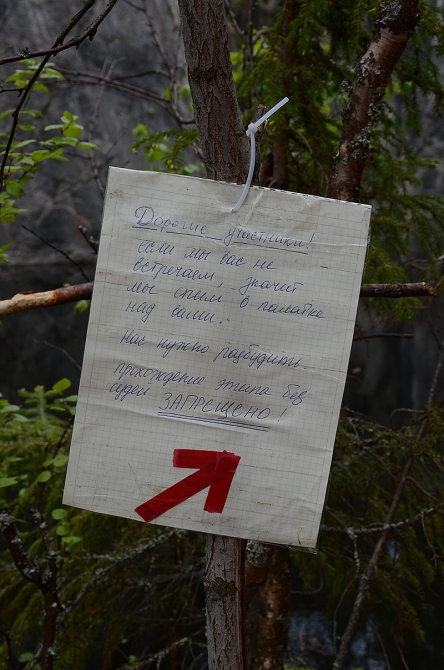 Дорогие участники!
если мы вас не
встречаем, значит
мы спим в палатке
над вами.
Нас нужно разбудить.
прохождение этапа без
судей ЗАПРЕЩЕНО!